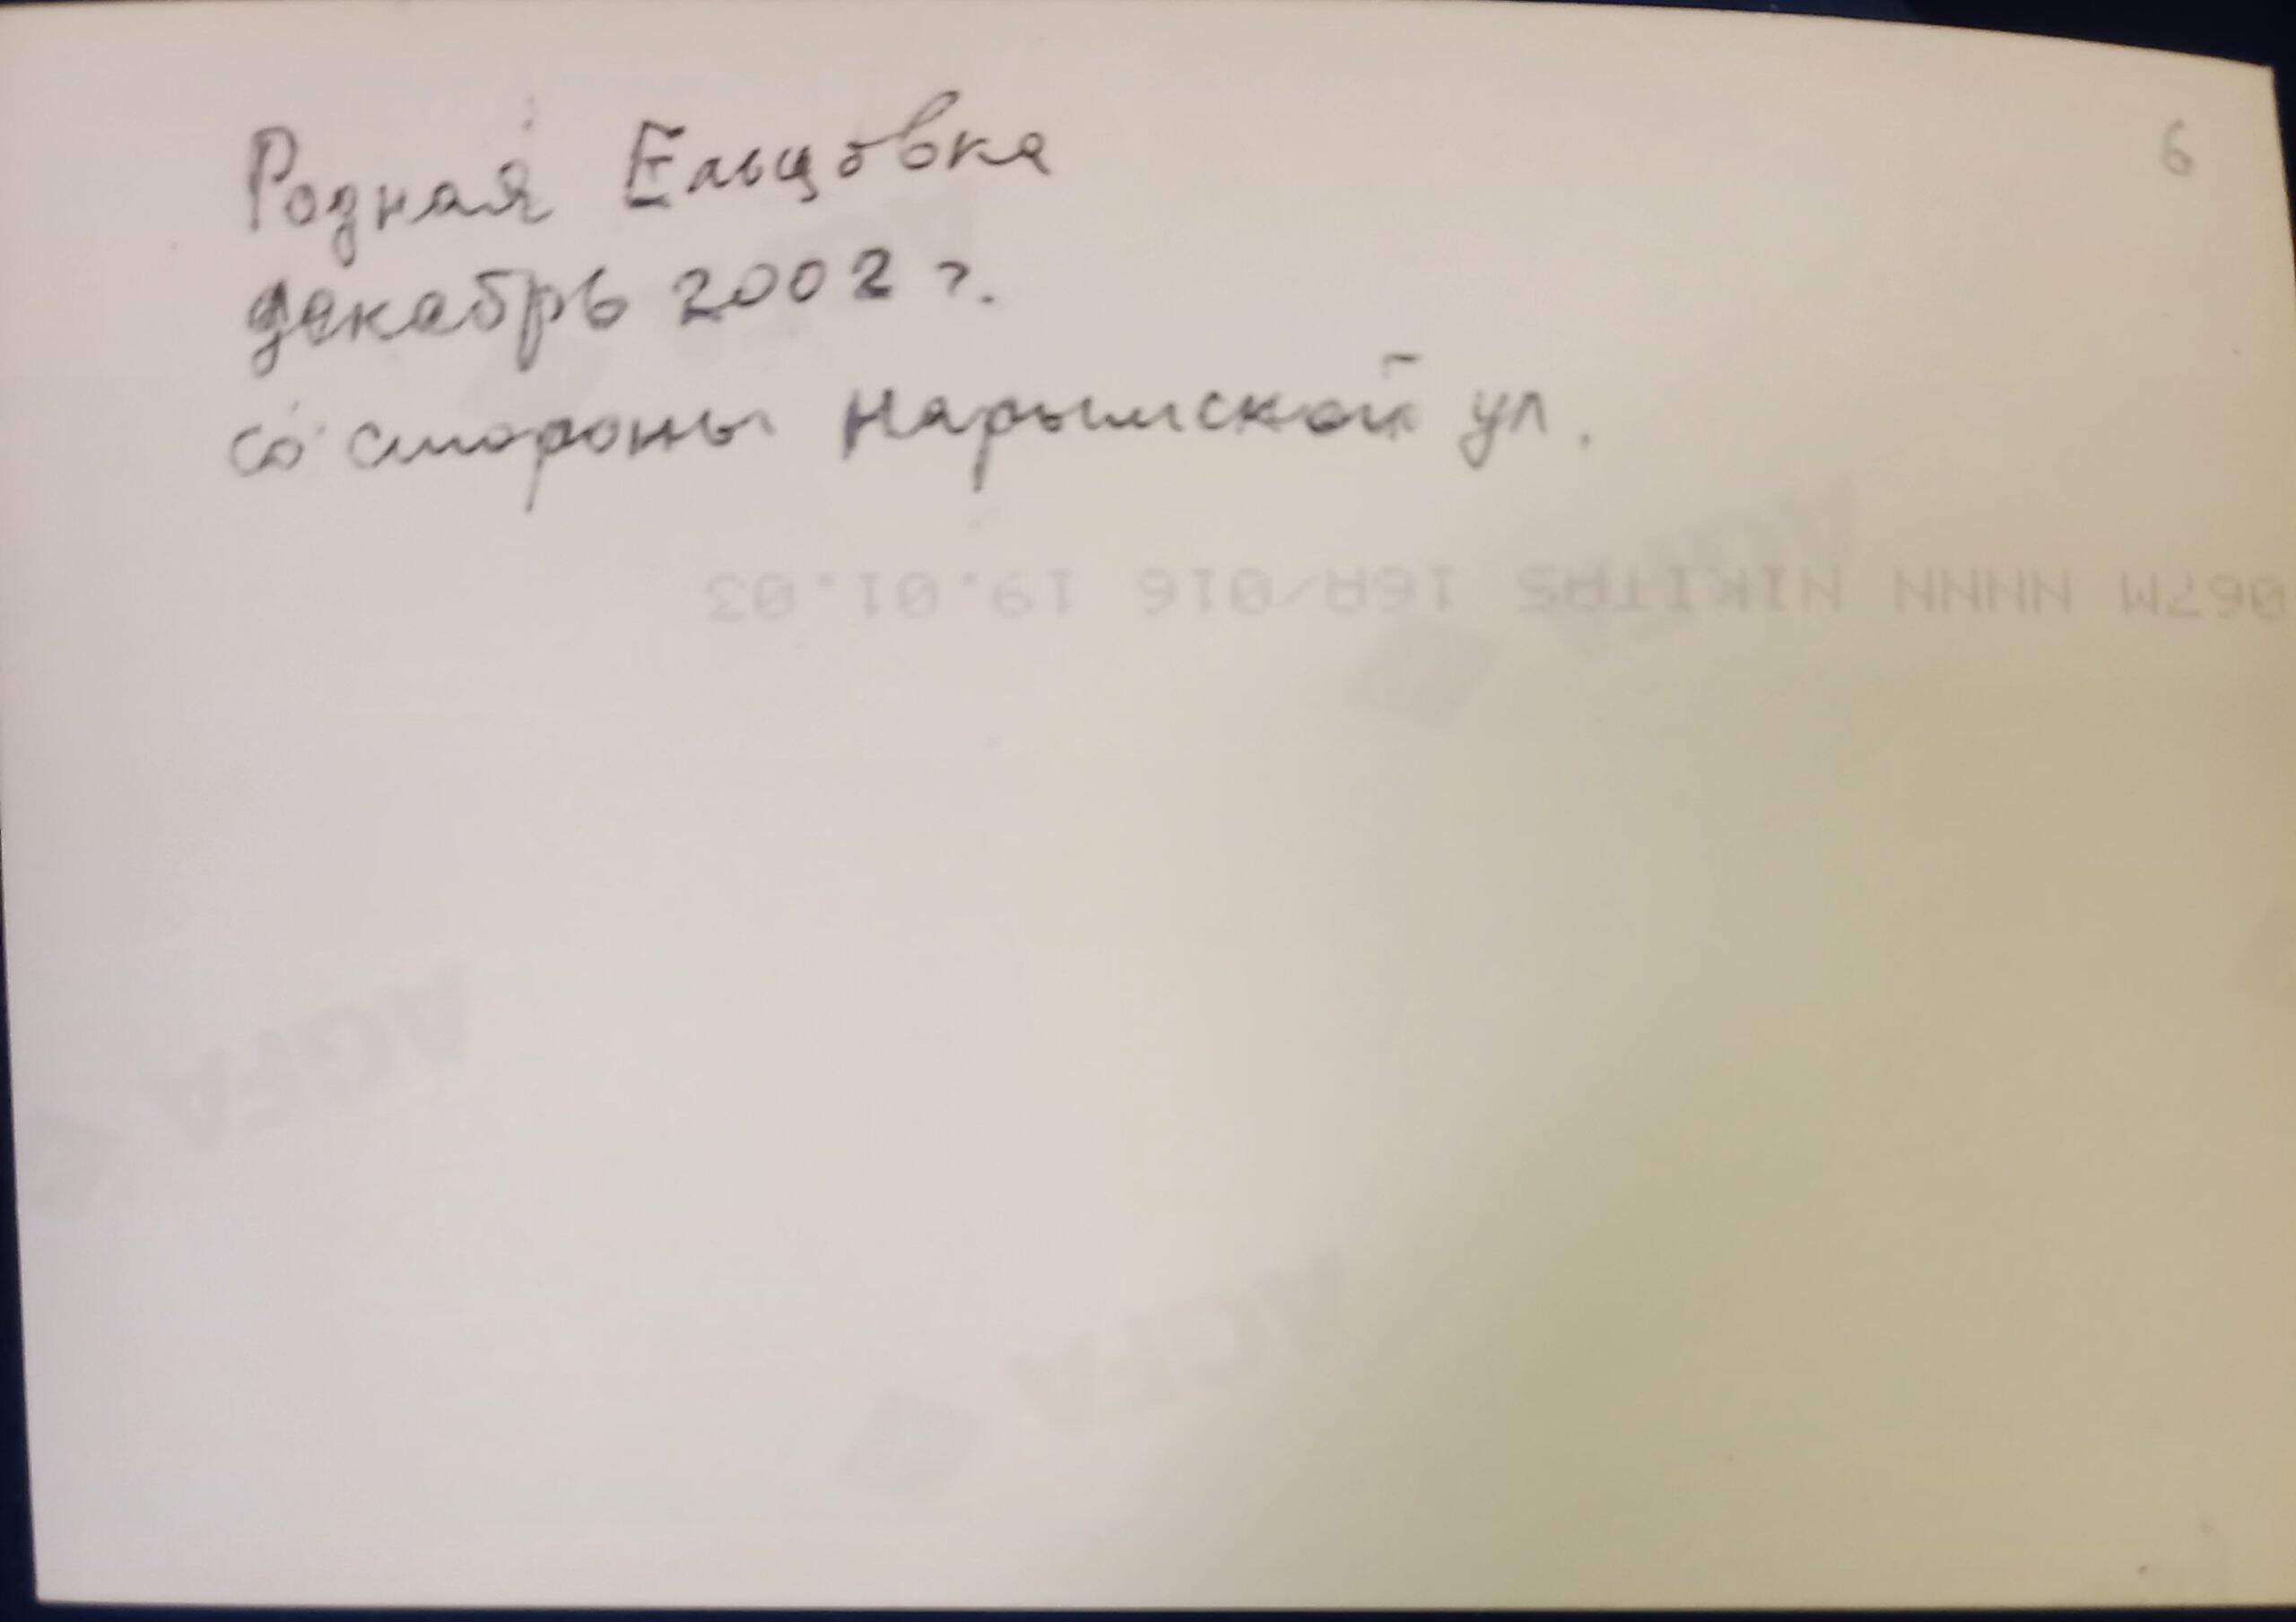 Родная Ельцовка
6
декабрь 2002 г.
со стороны Нарымской ул.
067M NNNN NIKITAS 16A/016 19.01.03
AGFA
AGFA
AGFA